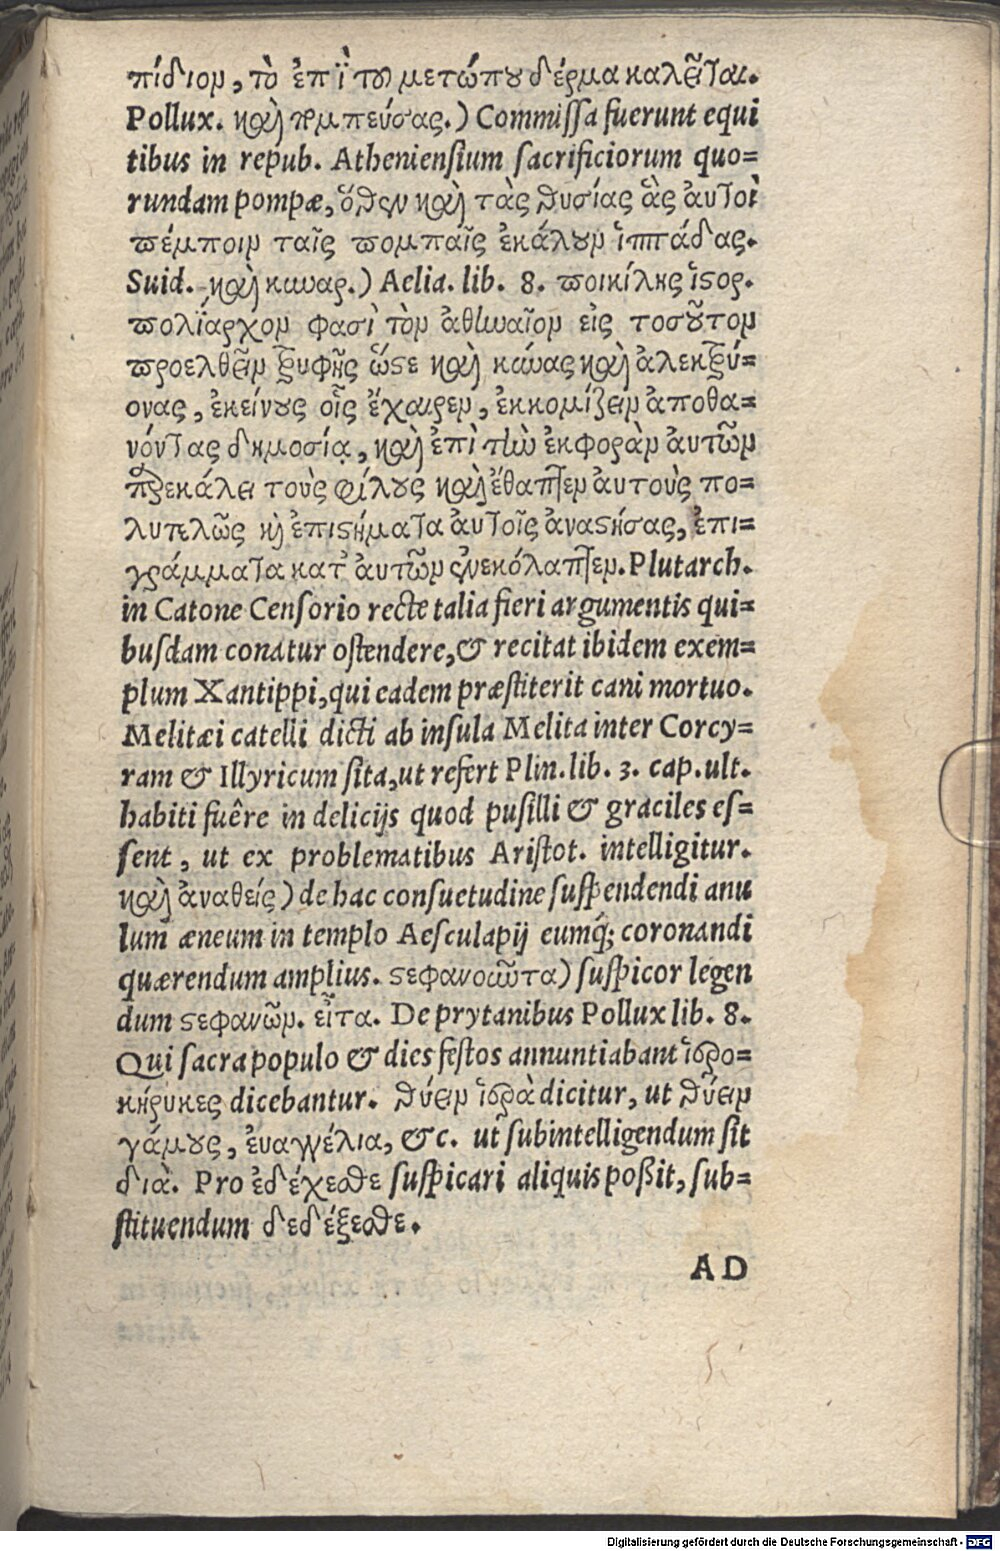 πίδιον, τὸ ἐπὶ τοῦ μετώπου δέρμα καλεῖται.
Pollux. καὶ πομπεύσας.) Commissa fuerunt equi
tibus in repub. Atheniensium sacrificiorum quo=
rundam pompæ, ὅθεν καὶ τὰς θυσίας ἃς αὐτοὶ
πέμποιν ταῖς πομπαῖς ἐκάλουν ἱππάδας.
Suid. καὶ κυναρ.) Aelia. lib. 8. ποικίλης ἱστορ.
πολίαρχον φασὶ τὸν ἀθηναῖον εἰς τοσοῦτον
προελθεῖν ξυφῆς ὥστε καὶ κύνας καὶ ἀλεκξύ=
ονας, ἐκείνους οἷς ἔχαιρεν, ἐκκομίζειν ἀποθα=
νόντας δημοσίᾳ, καὶ ἐπὶ τὴν ἐκφορὰν αὐτῶν
παρεκάλει τοὺς φίλους καὶ ἔθαπτεν αυτοὺς πο=
λυτελῶς καὶ ἐπιστήματα ἀυτοῖς ἀναστήσας, ἐπι=
γράμματα κατ᾽ ἀυτῶν ἐνεκόλαπτεν. Plutarch.
in Catone Censorio recte talia fieri argumentis qui=
busdam conatur ostendere, & recitat ibidem exem=
plum Xantippi, qui eadem præstiterit cani mortuo.
Melitæi catelli dicti ab insula Melita inter Corcy=
ram & Illyricum sita, ut refert Plin. lib. 3. cap. ult.
habiti fuêre in delicijs quod pusilli & graciles es=
sent, ut ex problematibus Aristot. intelligitur.
καὶ ἀναθείς) de hac consuetudine suspendendi anu
lum æneum in templo Aesculapij eumq́; coronandi
quærendum amplius. στεφανοιῶτα) suspicor legen
dum στεφανῶν. εἶτα. De prytanibus Pollux lib. 8.
Qui sacra populo & dies festos annuntiabant ἱερο=
κήρυκες dicebantur. θύειν ἱερὰ dicitur, ut θύειν
γάμους, ἐυαγγέλια, &c. ut subintelligendum sit
διὰ. Pro ἐδέχεσθε suspicari aliquis poßit, sub=
stituendum δεδέξεσθε.
AD
Digitalisierung gefördert durch die Deutsche Forschungsgemeinschaft - DFG